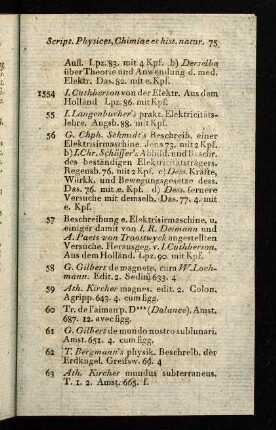 Script. Physices, Chimiae et hist. natur. 75
Aufl. Lpz. 83. mit 4 Kpf. b) Derselbe
über Theorie und Anwendung d. med.
Elektr. Das. 82. mit e. Kpf.
1554 I. Cuthberson von der Elektr. Aus dem
Holländ Lpz. 86. mit Kpf.
55 I. Langenbucher's prakt. Elektricitäts-
lehre. Augsb. 88. mit Kpf.
56 G. Chph. Schmidt's Beschreib. einer
Elektrisirmaschine. Jena 73. mit 2 Kpf.
b) I. Chr. Schäffer's Abbild. und Beschr.
des beständigen Elektricitätsträgers.
Regensb. 76. mit 2 Kpf. c) Dess. Kräfte,
Würkk. und Bewegungsgesetze dess.
Das. 76. mit e. Kpf. d) Dess. fernere
Versuche mit demselb. Das. 77. 4. mit
e. Kpf.
57 Beschreibung e. Elektrisirmaschine, u.
einiger damit von I. R. Deimann und
A. Paets von Troostwyck angestellten
Versuche. Herausgeg. v. I. Cuthberson.
Aus dem Holländ. Lpz. 90. mit Kpf.
58 G. Gilbert de magnete. cura W. Loch-
mann. Edit. 2. Sedini 633. 4
59 Ath. Kircher magnes. edit. 2. Colon.
Agripp. 643. 4. cum figg.
60 Tr. de l'aiman p. D*** (Dalance). Amst.
687. 12. avec figg.
61 G. Gilbert de mundo nostro sublunari.
Amst. 651. 4. cum figg.
62 T. Bergmann's physik. Beschreib. der
Erdkugel. Greifsw. 69. 4
63 Ath. Kircher mundus subterraneus.
T. 1. 2. Amst. 665. f.